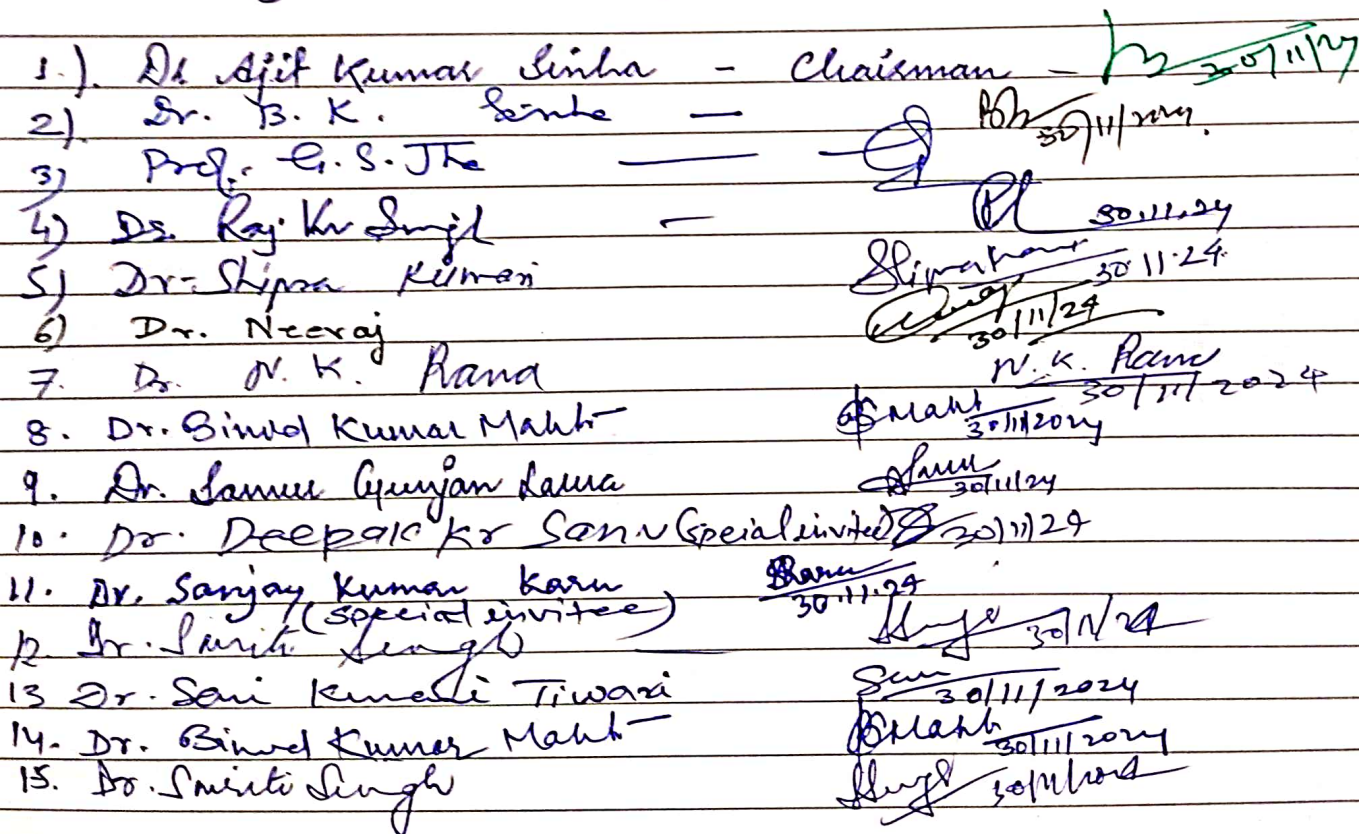 1.). Dr Ajit Kumar Sinha - Chairman - 30/11/24
2). Dr. B. K. Sinha — 30/11/2024.
3) Prof. G. S. Jha —
4) Dr. Raj Kr Singh - 30.11.24
5) Dr. Shipra Kumari 30.11.24.
6) Dr. Neeraj 30/11/24
7. Dr. N. K. Rana N. K. Rana 30/11/2024
8. Dr. Binod Kumar Mahto BKMahto 30/11/2024
9. Dr. Gunjan 30/11/24
10. Dr. Deepak Kr (Special invitee) 30/11/24
11. Dr. Sanjay Kumar Karn 30.11.24
(special invitee)
12. Dr. Smriti Singh — 30/11/24
13 Dr. Kumari Tiwari 30/11/2024
14. Dr. Binod Kumar Mahto BKMahto 30/11/2024
15. Dr. Smriti Singh 30/11/2024